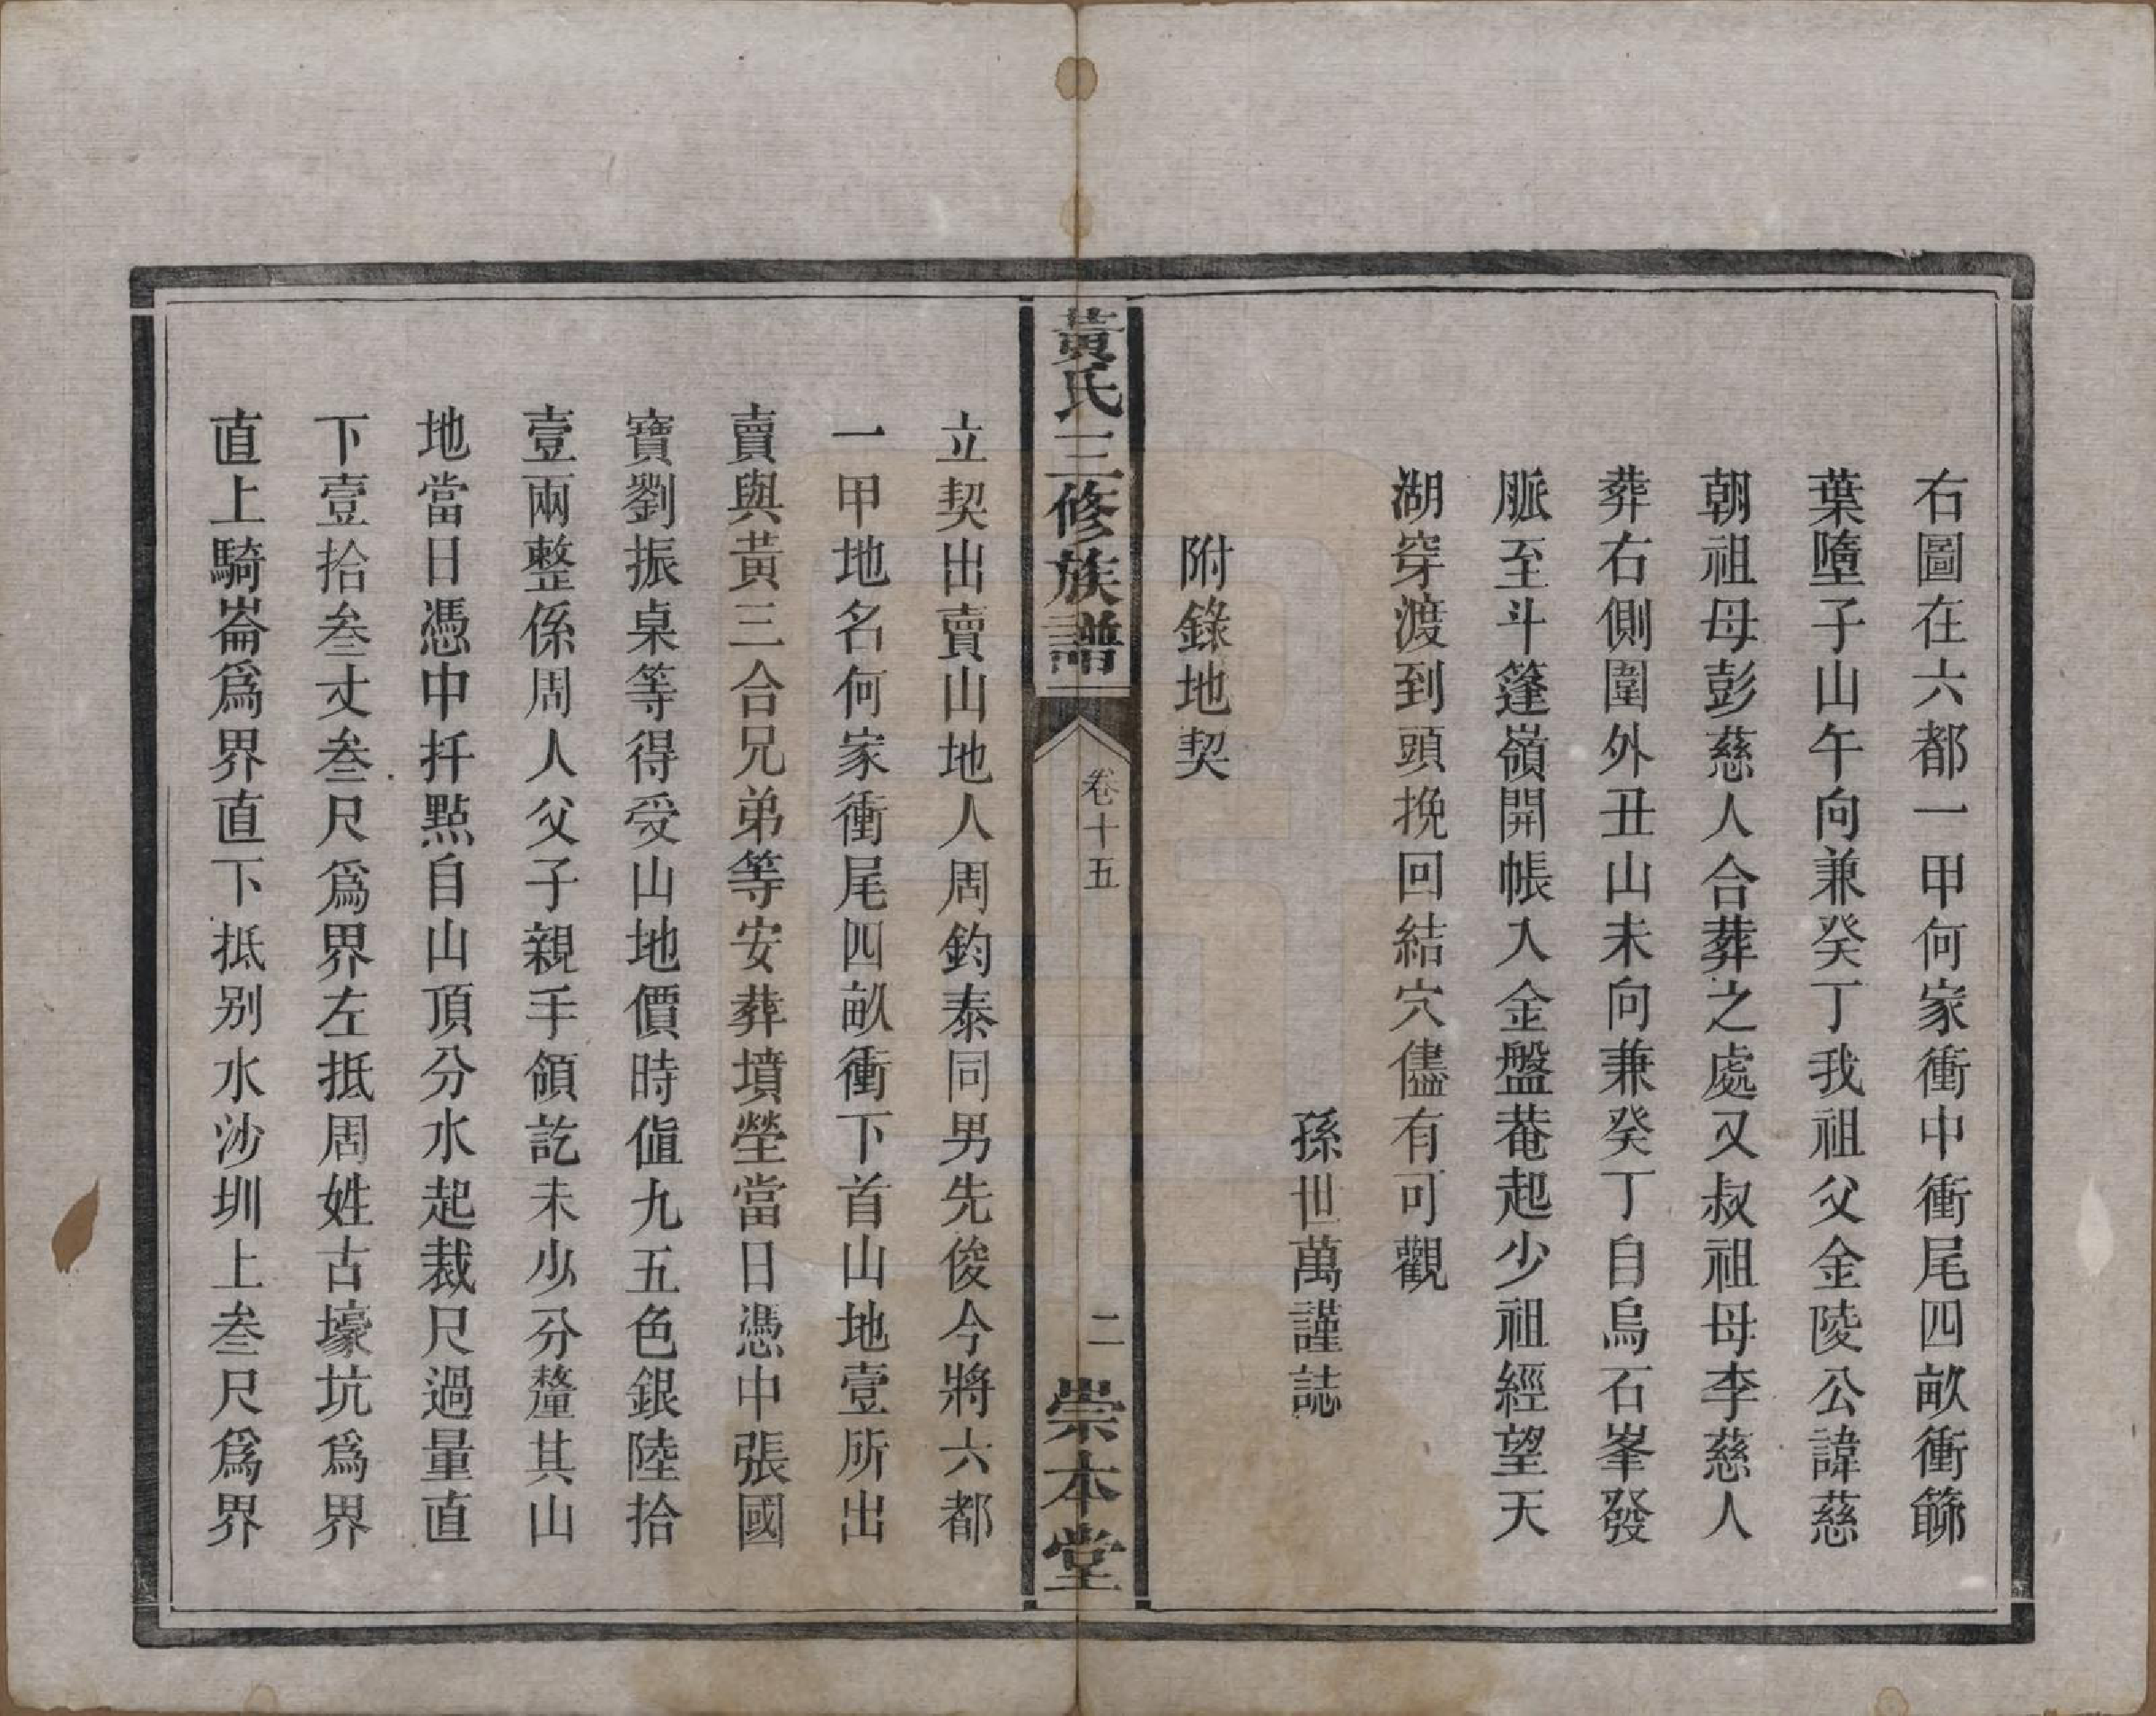 右圖在六都一甲何家衝中衝尾四畝衝篩
葉墮子山午向兼癸丁我祖父金陵公諱慈
朝祖母彭慈人合葬之處又叔祖母李慈人
葬右側圍外丑山未向兼癸丁自烏石峯發
脈至斗篷嶺開帳入金盤菴起少祖經望天
湖穿渡到頭挽回結穴儘有可觀
孫世萬謹誌
附錄地契
黃氏三修族譜
卷十五
二
崇本堂
立契出賣山地人周鈞泰同男先俊今將六都
一甲地名何家衝尾四畝衝下首山地壹所出
賣與黃三合兄弟等安葬墳塋當日憑中張國
寶劉振桌等得受山地價時值九五色銀陸拾
壹兩整係周人父子親手領訖未少分釐其山
地當日憑中扦點自山頂分水起裁尺過量直
下壹拾叁丈叁尺爲界左抵周姓古壕坑爲界
直上騎崙爲界直下抵别水沙圳上叁尺爲界